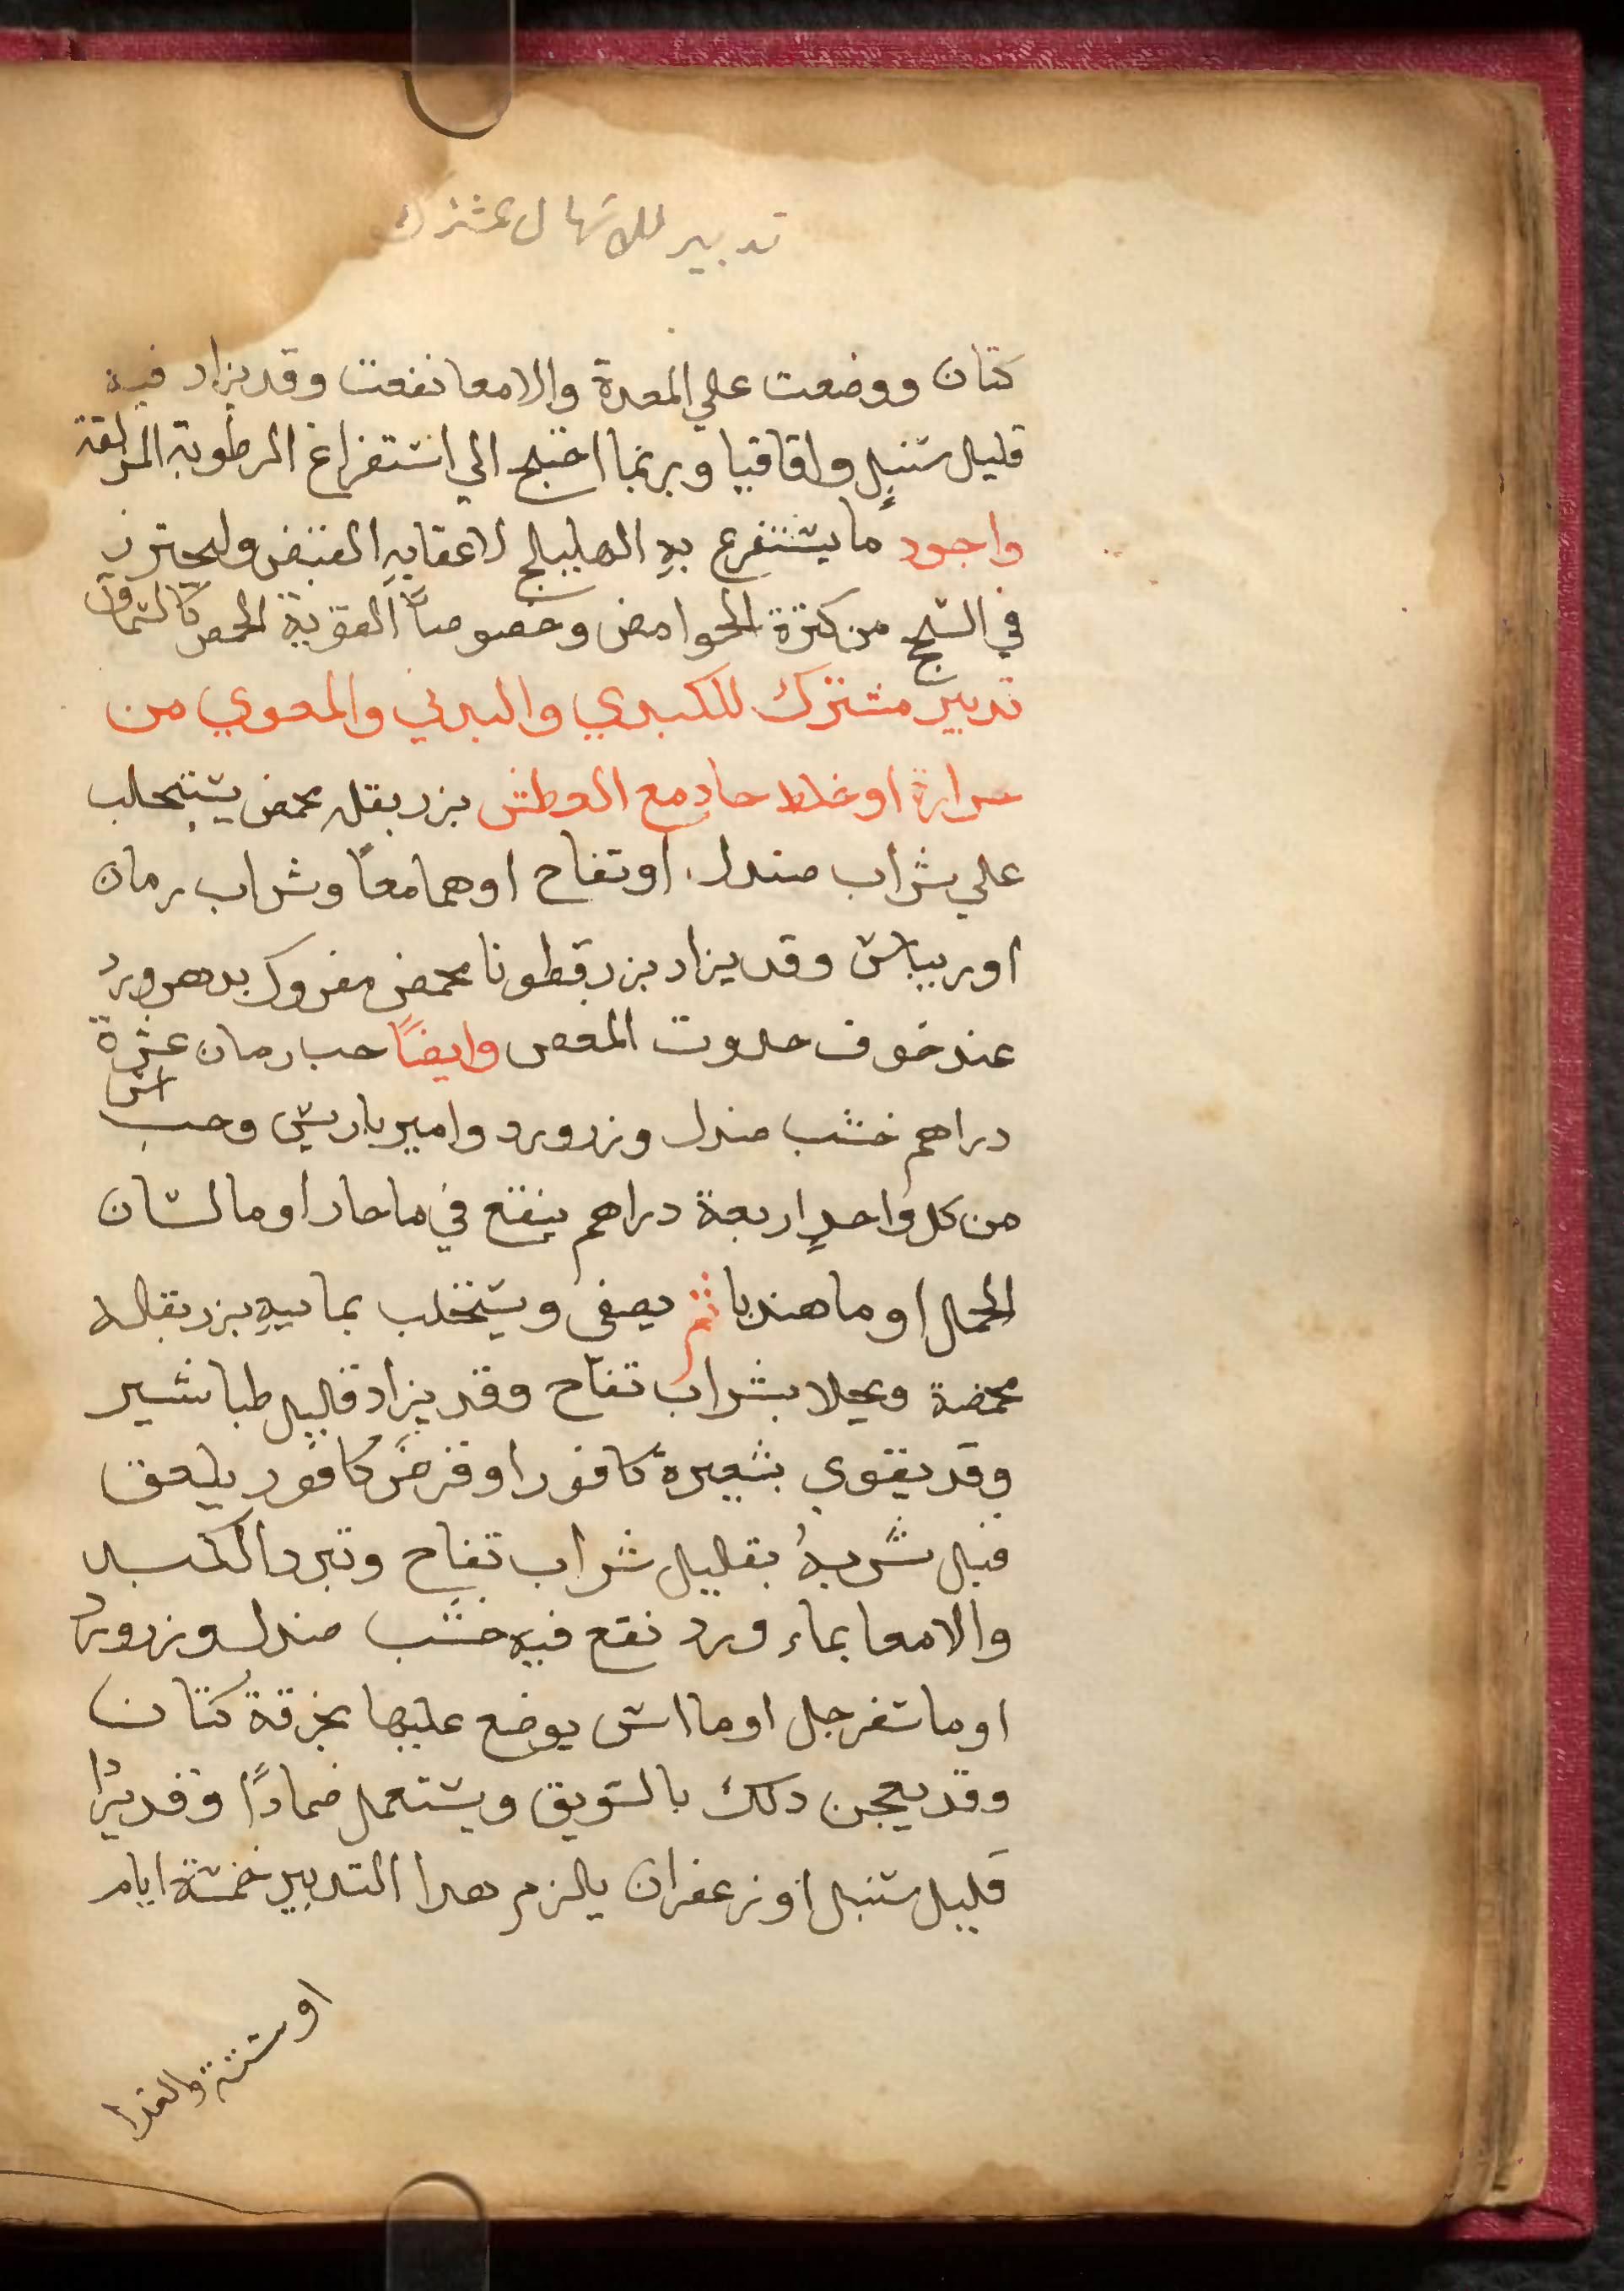 تدبير للاسهال مشترك
كتان ووضعت علي المعدة والامعا نفعت وقد يزاد فيه
قليل سنبل واقاقيا وربما احتيج الي استفراغ الرطوبة المزلقة
واجود ما يستفرغ به الهليلج لاعقابه القبض وليحترز
في السحج من كثرة الحوامض وخصوصاً القوية الحمض كالسماق
تدبير مشترك للكبدي والبدني والمعوي من
حرارة او خلط حاد مع العطش بزر بقله محمص يستحلب
علي شراب صندل او تفاح او هما معاً وشراب رمان
او ريباس وقد يزاد بزر قطونا محمص مفروك بدهن ورد
عند خوف حدوت المغص وايضاً حب رمان عشرة
دراهم خشب صندل وزرورد وامير باريس وحب اس
من كل واحدٍ اربعة دراهم ينقع في ما حار او ما لسان
الحمل او ما هندبا ثم يصفي ويستحلب بمايه بزر بقله
محمصة ويحلا بشراب تفاح وقد يزاد قليل طباشير
وقد يقوي بشعيرة كافور او قرص كافور يلعق
قبل شربه بقليل شراب تفاح وتبرد الكبد
والامعا بماء ورد نقع فيه خشب صندل وزرورد
او ما سفرجل او ما اس يوضع عليها بخرقة كتان
وقد يعجن دلك بالسويق ويستعمل ضماداً وقد يزاد
قليل سنبل او زعفران يلزم هدا التدبير خمسة ايام
او ستة والغدا